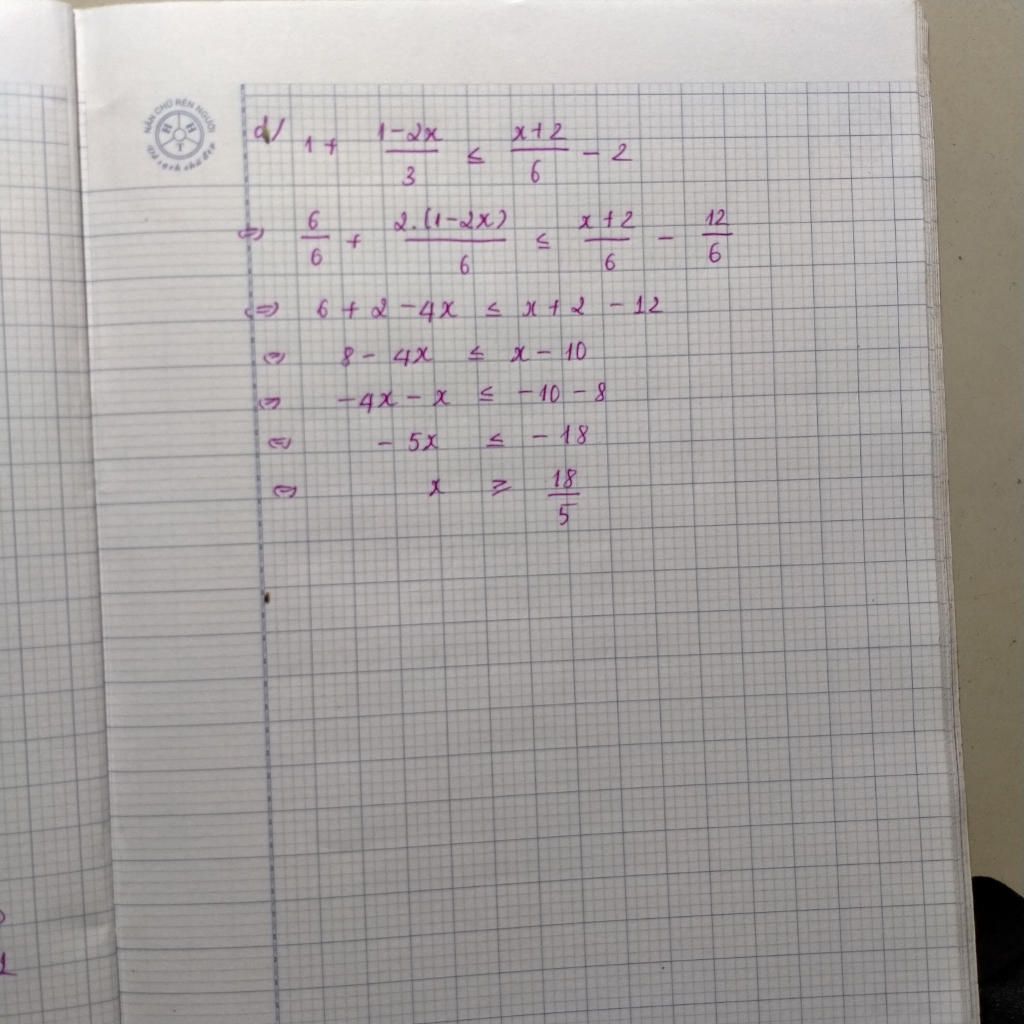 NẮN CHỮ RÈN NGƯỜI
H H T
d/ 1 + \frac{1-2x}{3} ≤ \frac{x+2}{6} - 2
⇔ \frac{6}{6} + \frac{2.(1-2x)}{6} ≤ \frac{x+2}{6} - \frac{12}{6}
⇔ 6 + 2 - 4x ≤ x + 2 - 12
⇔ 8 - 4x ≤ x - 10
⇔ -4x - x ≤ -10 - 8
⇔ -5x ≤ -18
⇔ x ≥ \frac{18}{5}